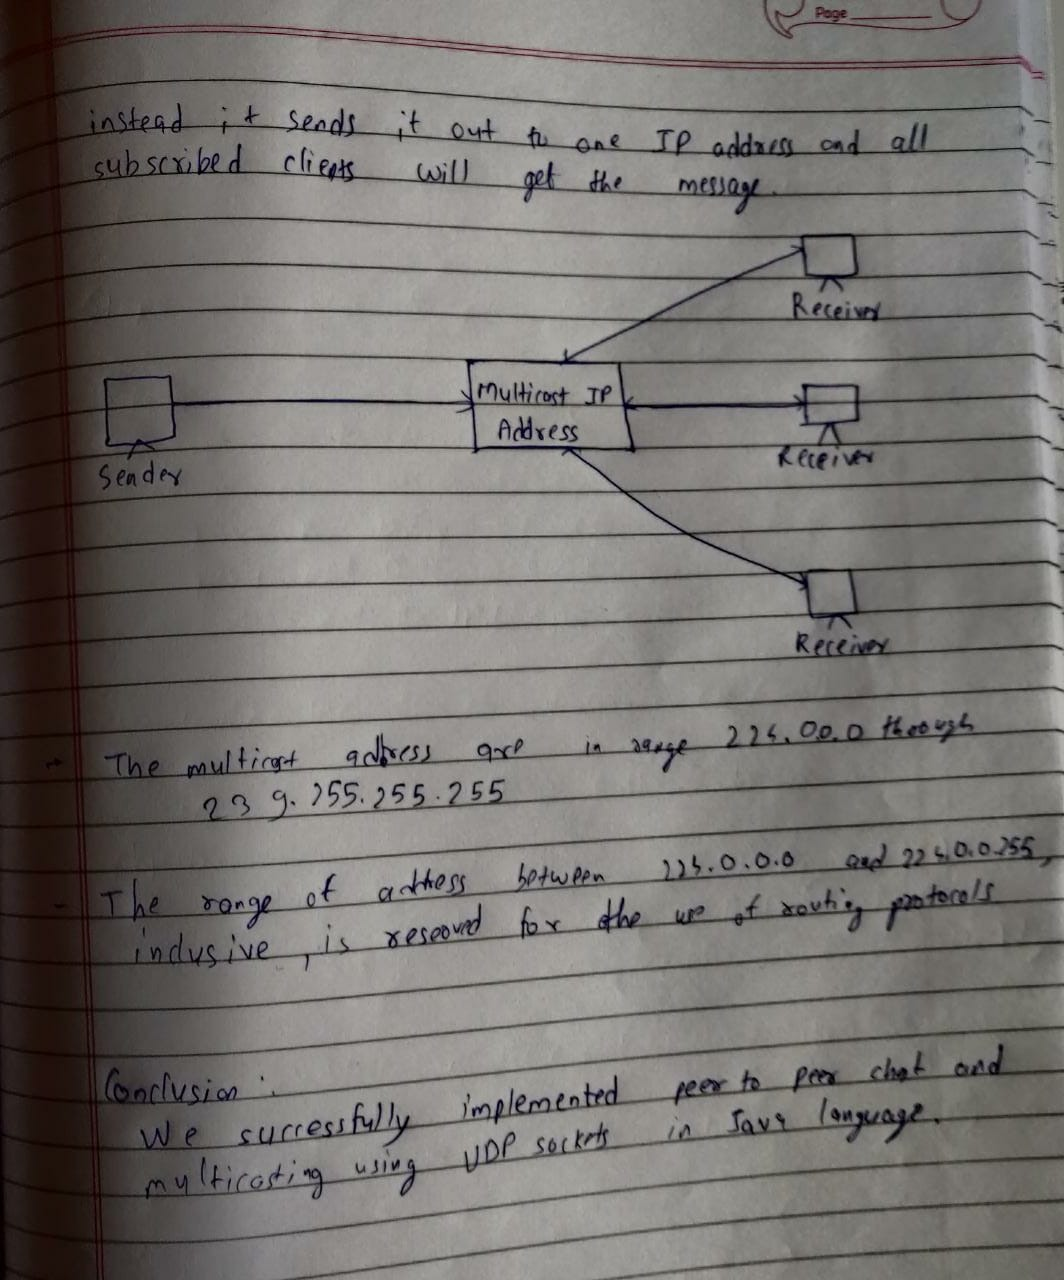 Page
instead it sends it out to one IP address and all
subscribed clients will get the message.
Receiver
Multicast IP
Address
Sender
Receiver
Receiver
→ The multicast address are in range 224.00.0 through
239.255.255.255
- The range of address between 224.0.0.0 and 224.0.0.255,
inclusive, is reserved for the use of routing protocols
Conclusion :
We successfully implemented peer to peer chat and
multicasting using UDP sockets in Java language.